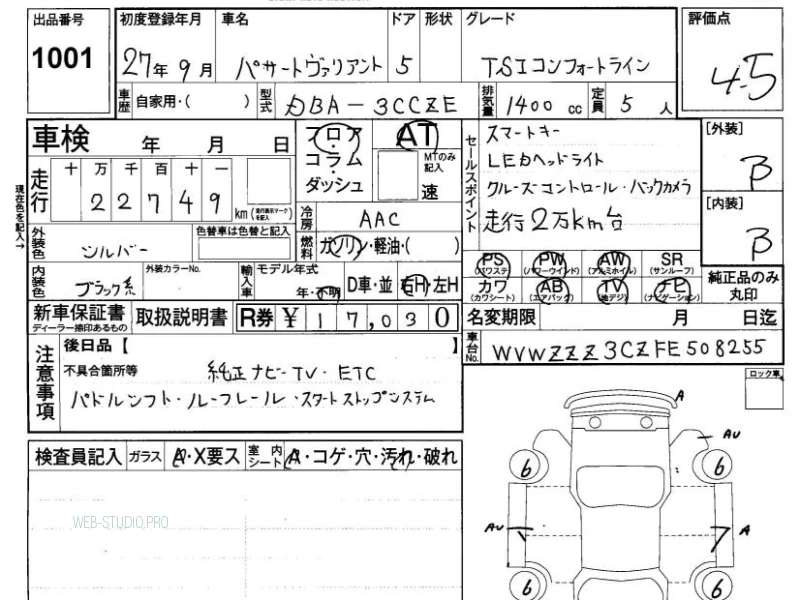 出品番号 初度登録年月 車名 ドア 形状 グレード 評価点
1001 27年 9月 パサートヴァリアント 5 TSIコンフォートライン 4.5
車歴 自家用・( ) 型式 DBA-3CCZE 排気量 1400 cc 定員 5 人
車検 年 月 日 フロア・コラム・ダッシュ AT MTのみ記入 速
セールスポイント スマートキー
LEDヘッドライト
クルーズコントロール・バックカメラ
走行2万km台
[外装] B
[内装] B
現在色を記入→
走行 十 万 千 百 十 一
2 2 7 4 9 km
冷房 AAC
外装色 シルバー 色替車は色替と記入 燃料 ガソリン・軽油・( )
PS (パワステ) PW (パワーウインド) AW (アルミホイル) SR (サンルーフ)
カワ (カワシート) AB (エアバッグ) TV (地デジ) ナビ (ナビゲーション)
純正品のみ丸印
内装色 ブラック系 外装カラーNo. 輸入車 モデル年式 年・不明 D車・並 右H・左H
新車保証書 ディーラー捺印あるもの 取扱説明書 R券 ¥ 17,030 名変期限 月 日迄
注意事項 後日品【 】
車台No. WVWZZZ3CZFE508255
不具合箇所等 純正ナビ-TV・ETC
パドルシフト・ルーフレール・スタートストップシステム
ロック車
検査員記入 ガラス A・X要ス 室内シート A・コゲ・穴・汚れ・破れ
A
AU
6 6
AU A
6 6
WEB-STUDIO.PRO